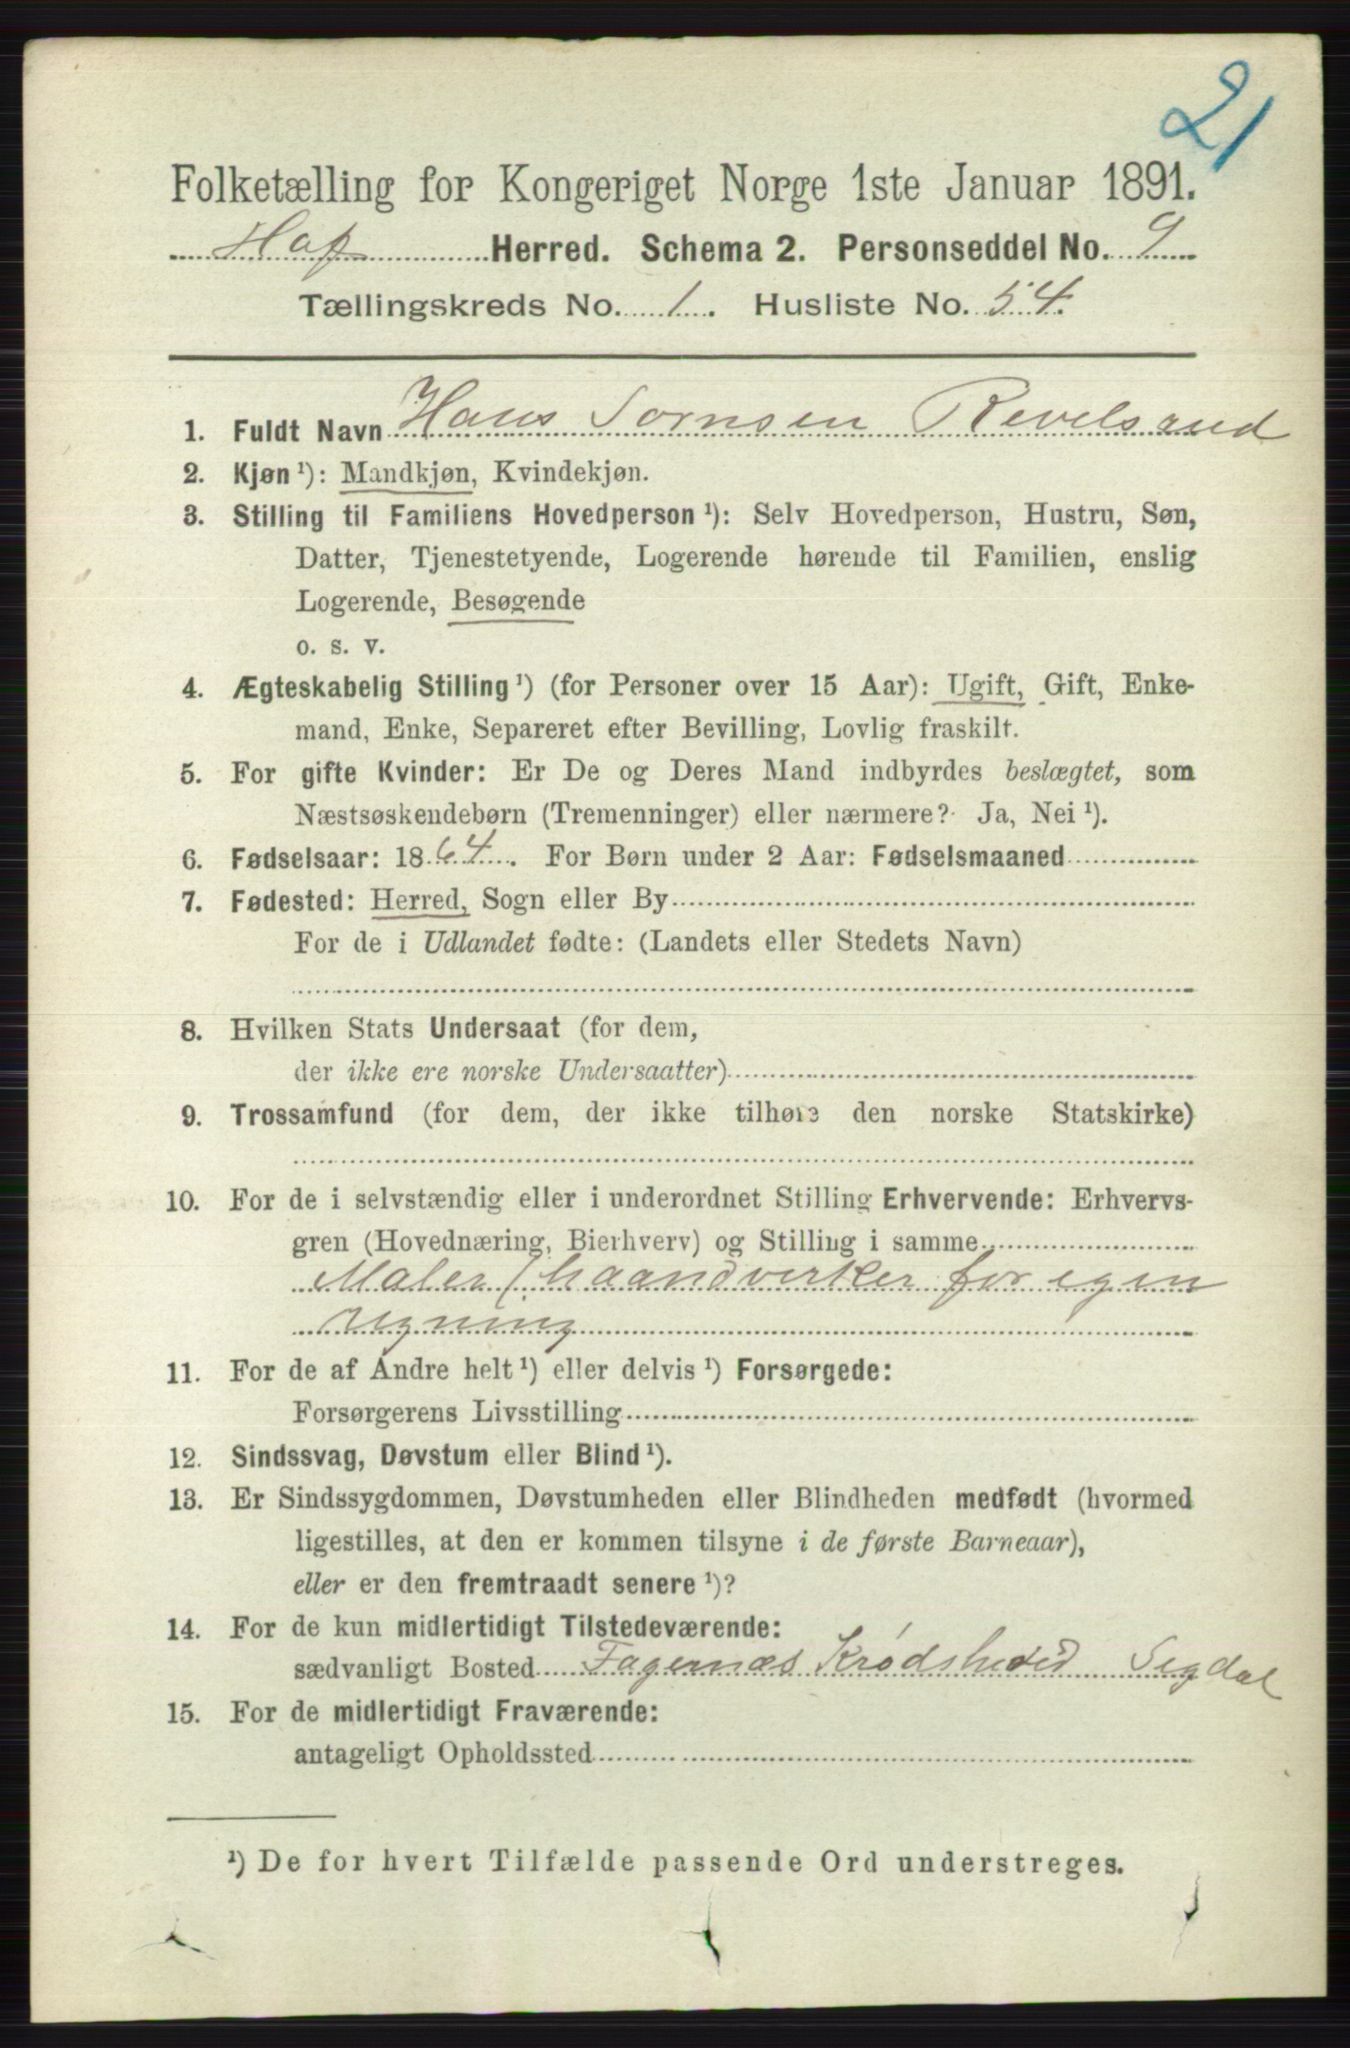 21
Folketælling for Kongeriget Norge 1ste Januar 1891.
Hof Herred. Schema 2. Personseddel No. 9
Tællingskreds No. 1. Husliste No. 54.
1. Fuldt Navn Hans Sornsen Revelsrud
2. Kjøn ¹): Mandkjøn, Kvindekjøn.
3. Stilling til Familiens Hovedperson ¹): Selv Hovedperson, Hustru, Søn,
Datter, Tjenestetyende, Logerende hørende til Familien, enslig
Logerende, Besøgende
o. s. v.
4. Ægteskabelig Stilling ¹) (for Personer over 15 Aar): Ugift, Gift, Enke-
mand, Enke, Separeret efter Bevilling, Lovlig fraskilt.
5. For gifte Kvinder: Er De og Deres Mand indbyrdes beslægtet, som
Næstsøskendebørn (Tremenninger) eller nærmere? Ja, Nei ¹).
6. Fødselsaar: 1864. For Børn under 2 Aar: Fødselsmaaned
7. Fødested: Herred, Sogn eller By
For de i Udlandet fødte: (Landets eller Stedets Navn)
8. Hvilken Stats Undersaat (for dem,
der ikke ere norske Undersaatter)
9. Trossamfund (for dem, der ikke tilhøre den norske Statskirke)
10. For de i selvstændig eller i underordnet Stilling Erhvervende: Erhvervs-
gren (Hovednæring, Bierhverv) og Stilling i samme
Maler / haandverker for egen
regning
11. For de af Andre helt ¹) eller delvis ¹) Forsørgede:
Forsørgerens Livsstilling
12. Sindssvag, Døvstum eller Blind ¹).
13. Er Sindssygdommen, Døvstumheden eller Blindheden medfødt (hvormed
ligestilles, at den er kommen tilsyne i de første Barneaar),
eller er den fremtraadt senere ¹)?
14. For de kun midlertidigt Tilstedeværende:
sædvanligt Bosted Fagernæs Krødshered Sigdal
15. For de midlertidigt Fraværende:
antageligt Opholdssted
¹) De for hvert Tilfælde passende Ord understreges.